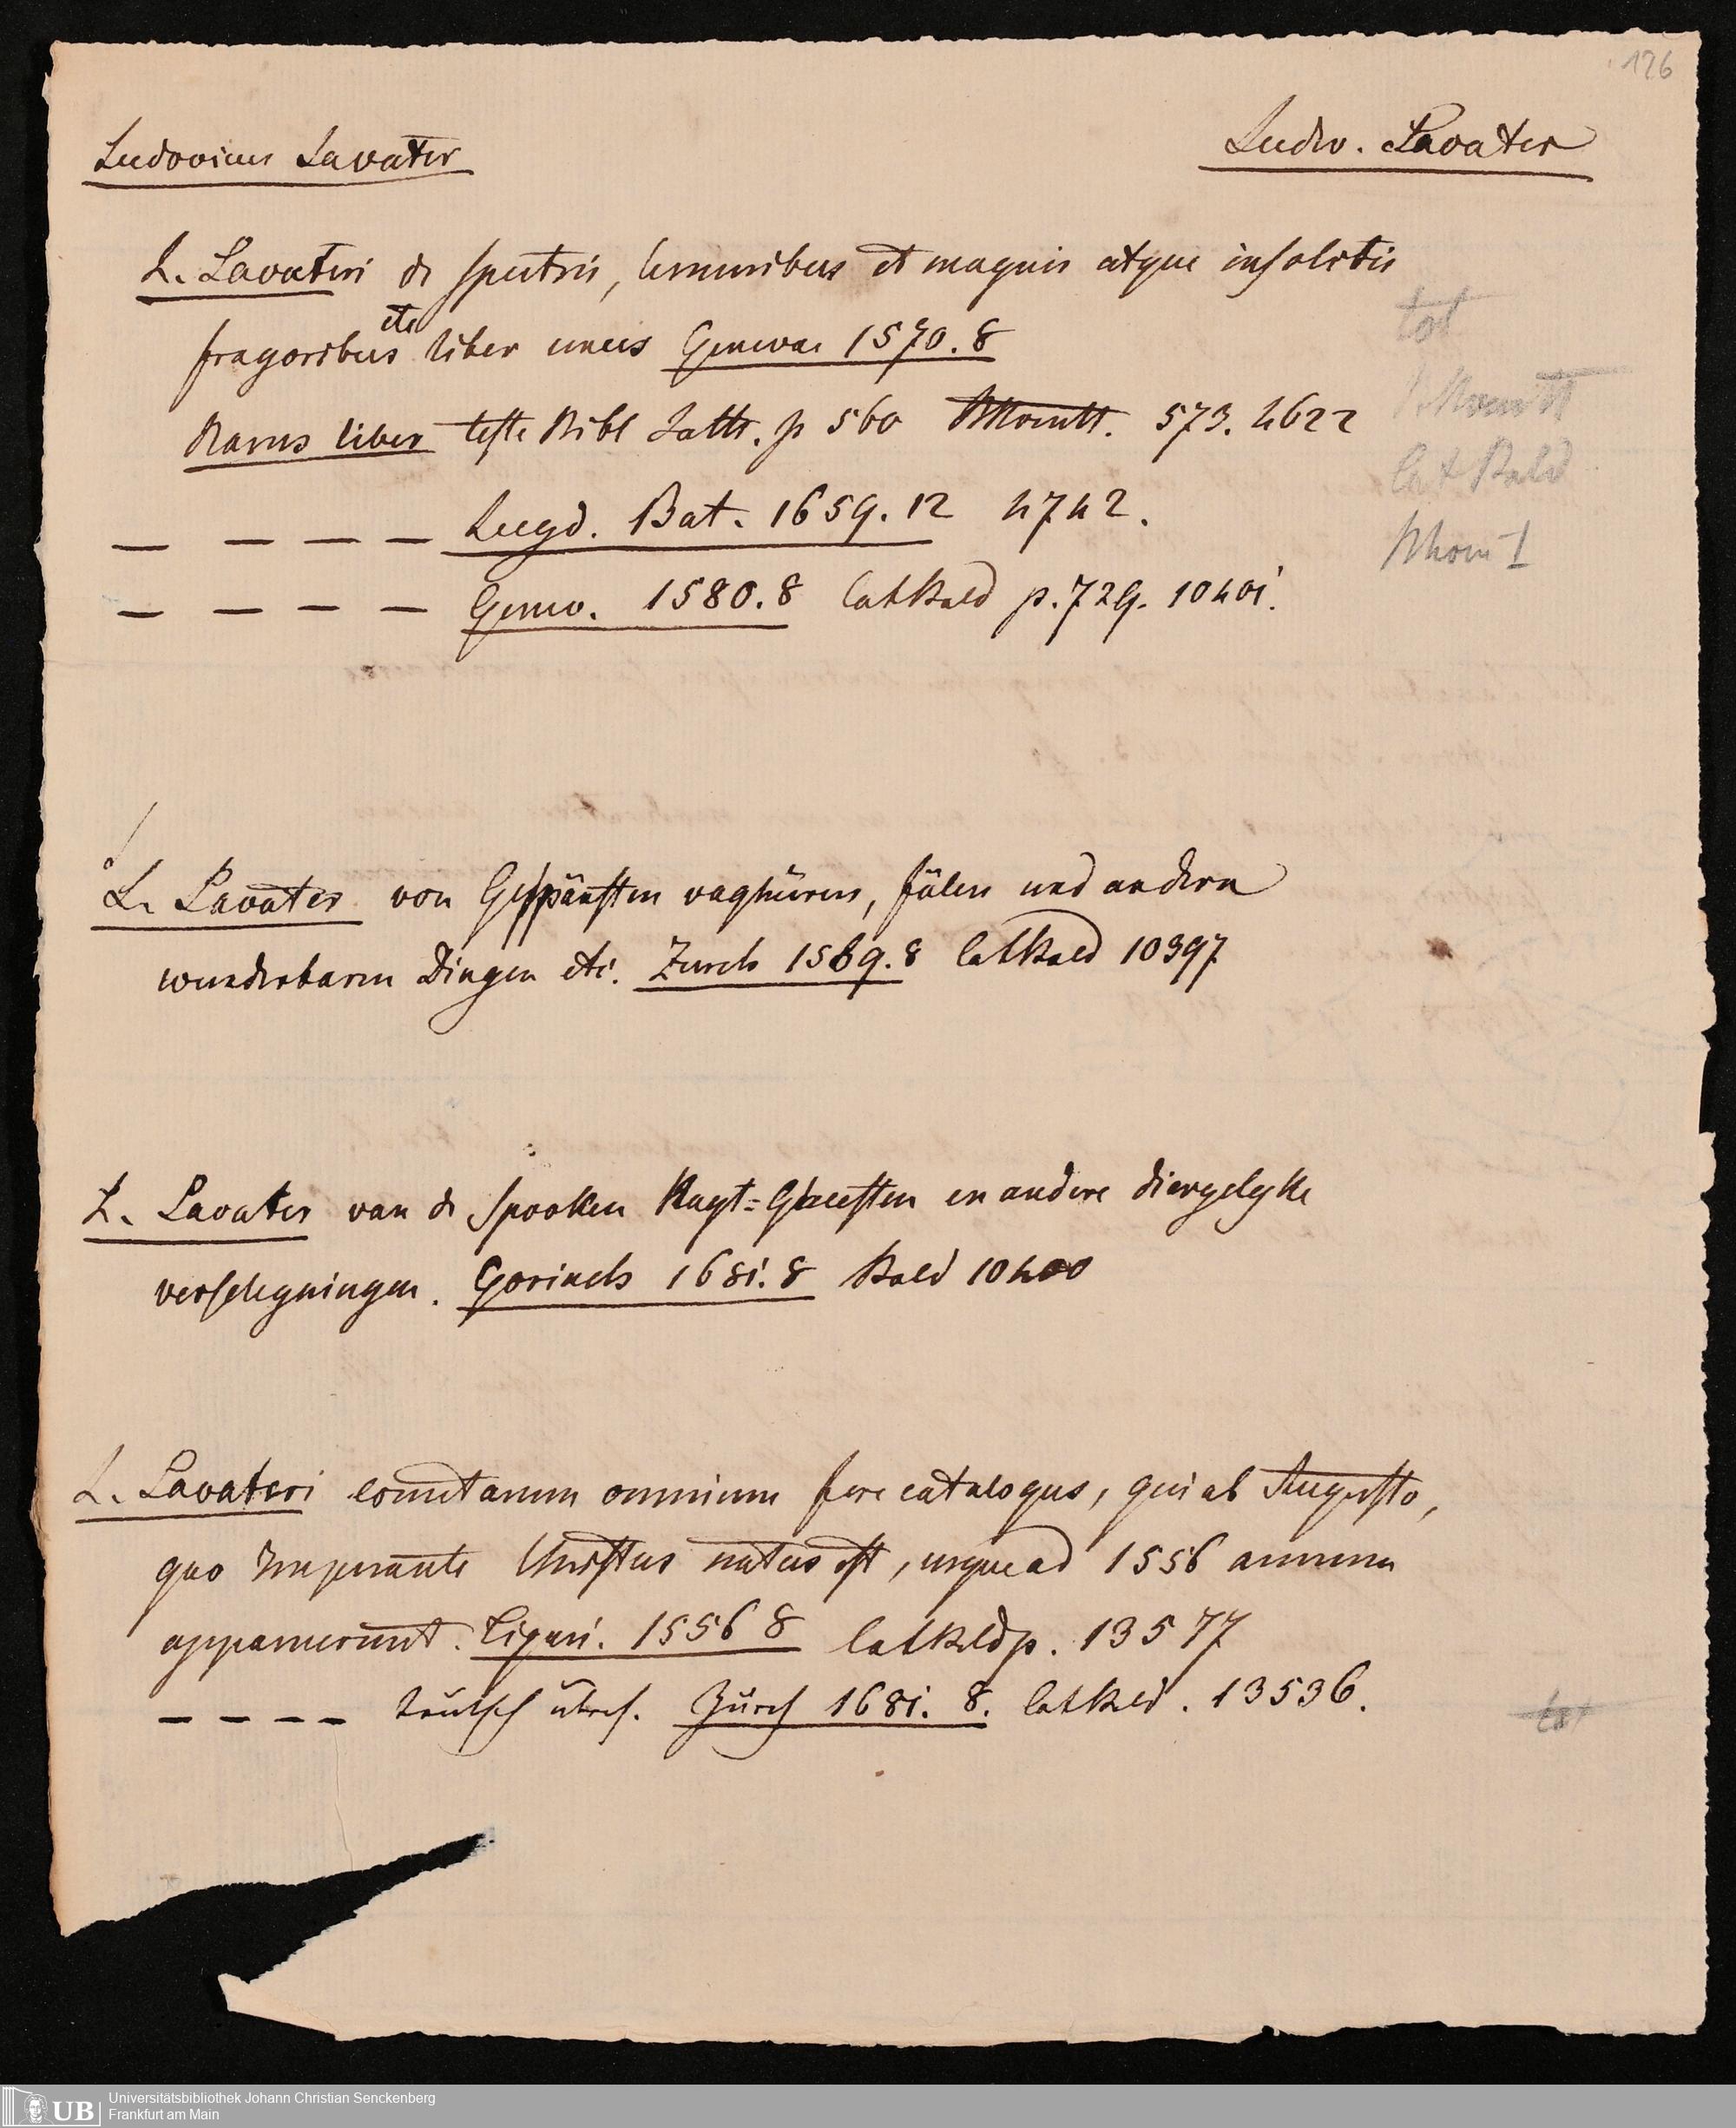 126
Ludovicus Lavater
Ludw. Lavater
L. Lavateri de spectris, lemuribus et magnis atque insolitis
fragoribus etc liber unus Genevae 1570. 8
tot
Rarus liber teste Bibl p 560 573. 4622
Lugd. Bat. 1659. 12 4742.
Cat Bald
Genev. 1580. 8 Cat Bald p. 729. 10401.
L. Lavater von Gespänsten unghüren, fälen und andern
wunderbaren Dingen etc. Zurch 1569. 8 Cat Bald 10397
L. Lavater van de Spooken Nagt=Gheesten en andere diergelyke
verschyningen. Gorinch 1681. 8 Bald 10400
L. Lavateri cometarum omnium fere catalogus, qui ab Augusto,
quo Imperante Christus natus est, usque ad 1556 annum
apparuerunt. Tiguri. 1556 8 Cat Bld p. 13577
teutsch übers. Zürch 1681. 8. Cat Bld. 13536.
Universitätsbibliothek Johann Christian Senckenberg
UB Frankfurt am Main